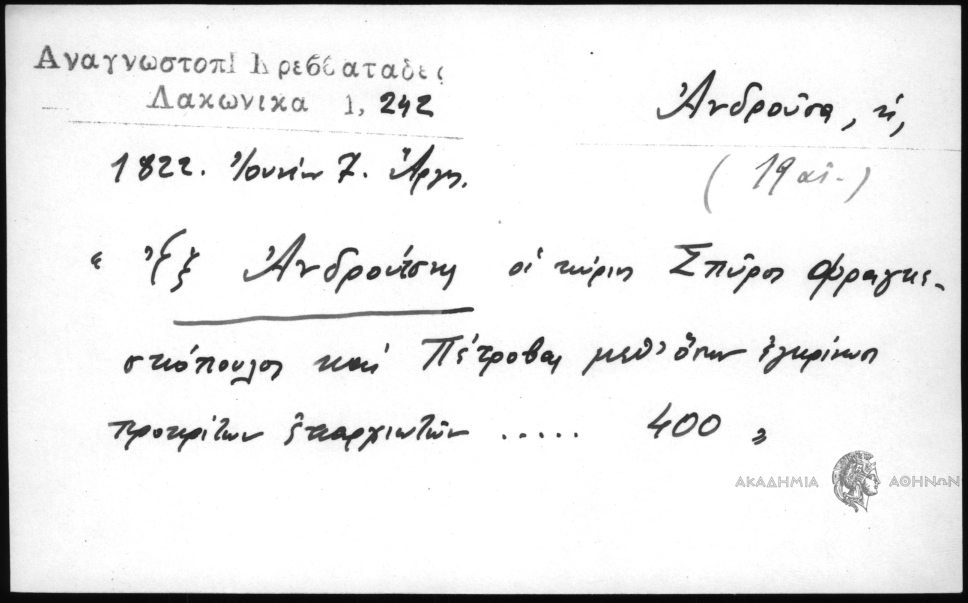 Αναγνωστοπ Κρεββαταδες
Λακωνικα 1, 242
Ἀνδροῦσα, ἡ,
(19 αἰ.)
1822. Ἰουνίου 7. Ἄργος.
« Ἐξ Ἀνδρούσης οἱ κύριοι Σπῦρος Φραγκι-
σκόπουλος καὶ Πέτροβας μεθ' ὅσων ἐγκρίνωσι
προκρίτων ἐπαρχιωτῶν ..... 400 »
ΑΚΑΔΗΜΙΑ ΑΘΗΝΩΝ